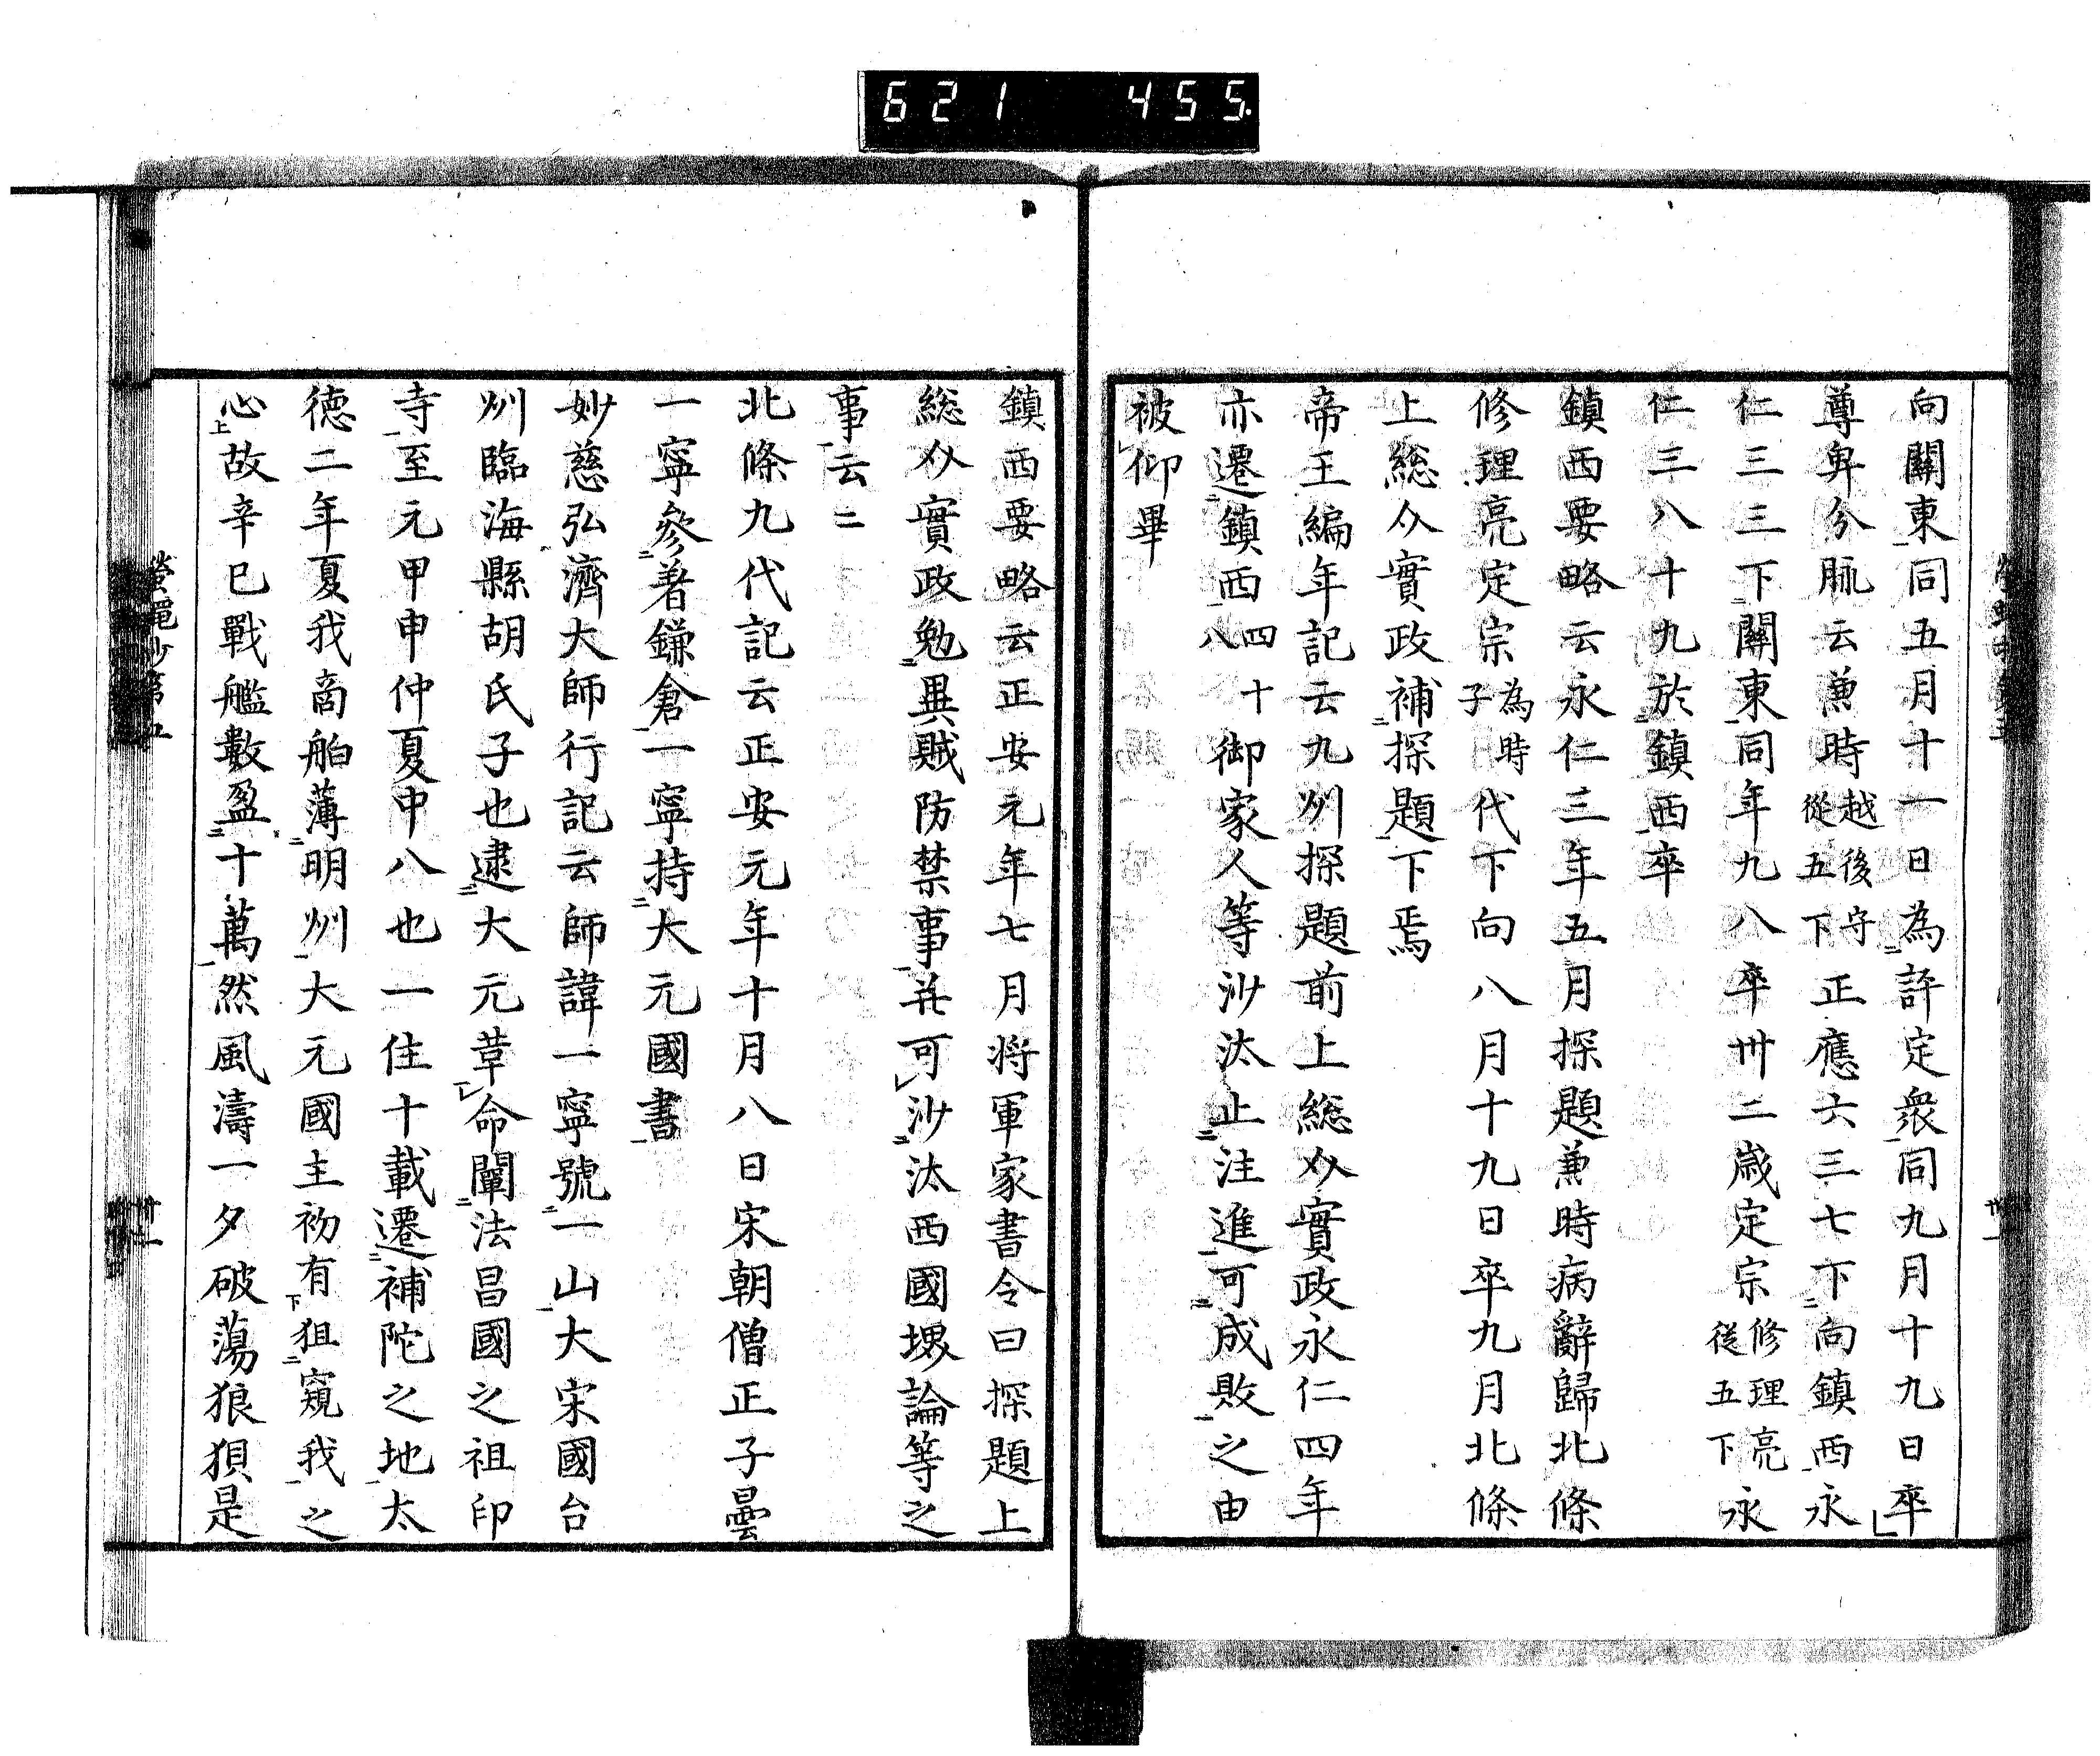 621 455.
向關東同五月十一日為評定衆同九月十九日卒
尊卑分脉云兼時越後守從五下正應六三七下向鎮西永
仁三三下關東同年九八卒卅二歳定宗修理亮從五下永
仁三八十九於鎮西卒
鎮西要略云永仁三年五月探題兼時病辭歸北條
修理亮定宗為時子代下向八月十九日卒九月北條
上総介實政補探題下焉
帝王編年記云九州探題前上総介實政永仁四年
亦遷鎮西四十八御家人等沙汰止注進可成敗之由
被仰畢
鎮西要略云正安元年七月将軍家書令曰探題上
総介實政勉異賊防禁事并可沙汰西國堺論等之
事云〻
北條九代記云正安元年十月八日宋朝僧正子曇
一寧參著鎌倉一寧持大元國書
妙慈弘濟大師行記云師諱一寧號一山大宋國台
州臨海縣胡氏子也逮大元革命闡法昌國之祖印
寺至元甲申仲夏中八也一住十載遷補陀之地太
徳二年夏我商舶薄明州大元國主初有狙窺我之
心故辛巳戰艦數盈十萬然風濤一夕破蕩狼狽是
螢蠅抄第五
卅一